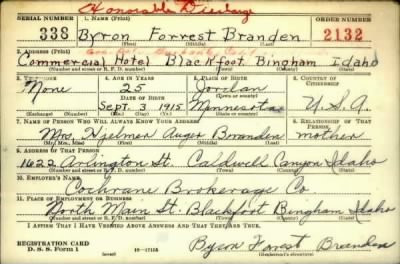 Honorable Discharge
SERIAL NUMBER 1. NAME (Print) ORDER NUMBER
338 Byron Forrest Branden 2132
(First) (Middle) (Last)
2. ADDRESS (Print)
Commercial Hotel Blackfoot Bingham Idaho
(Number and street or R. F. D. number) (Town) (County) (State)
3. TELEPHONE 4. AGE IN YEARS 5. PLACE OF BIRTH 6. COUNTRY OF CITIZENSHIP
None 25 Jordan
DATE OF BIRTH (Town or county)
Sept. 3 1915 Minnesota U.S.A.
(Mo.) (Day) (Yr.) (State or country)
7. NAME OF PERSON WHO WILL ALWAYS KNOW YOUR ADDRESS 8. RELATIONSHIP OF THAT PERSON
Mrs. Hjelmer Auger Branden mother
(Mr., Mrs., Miss) (First) (Middle) (Last)
9. ADDRESS OF THAT PERSON
1622 Arlington St. Caldwell Canyon Idaho
(Number and street or R. F. D. number) (Town) (County) (State)
10. EMPLOYER'S NAME
Cochrane Brokerage Co
11. PLACE OF EMPLOYMENT OR BUSINESS
North Main St. Blackfoot Bingham Idaho
(Number and street or R. F. D. number) (Town) (County) (State)
I AFFIRM THAT I HAVE VERIFIED ABOVE ANSWERS AND THAT THEY ARE TRUE.
REGISTRATION CARD
D. S. S. Form 1 (over) 16—17105 Byron Forest Branden
(Registrant's signature)